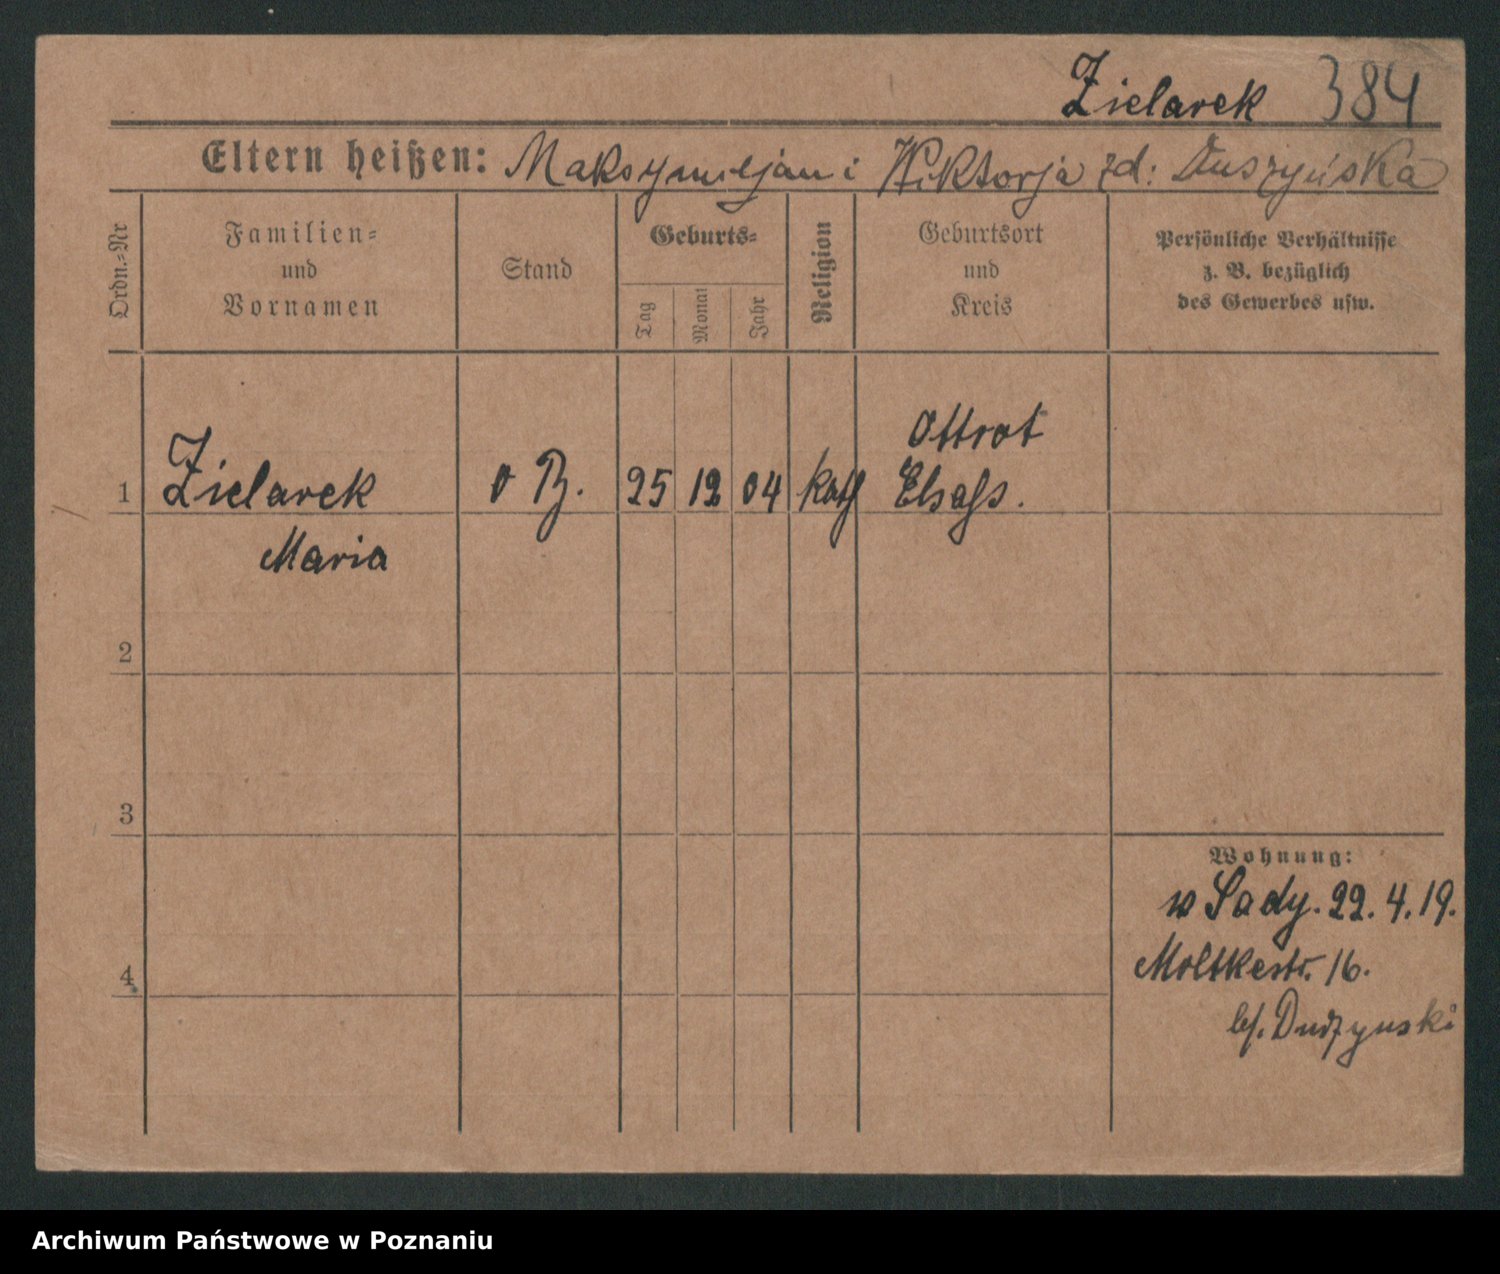 Zielarek 384
Eltern heißen: Maksymiljan i Wiktorja zd: Duszyńska
Ordn.-Nr
Familien-
und
Vornamen
Stand
Geburts-
Tag
Monat
Jahr
Religion
Geburtsort
und
Kreis
Persönliche Verhältnisse
z. B. bezüglich
des Gewerbes usw.
1
Zielarek
Maria
o B.
25
12
04
kath
Ottrot
Elsaß.
2
3
4
Wohnung:
w Sady. 22. 4. 19.
Moltkestr. 16.
b/. Duszynski
Archiwum Państwowe w Poznaniu